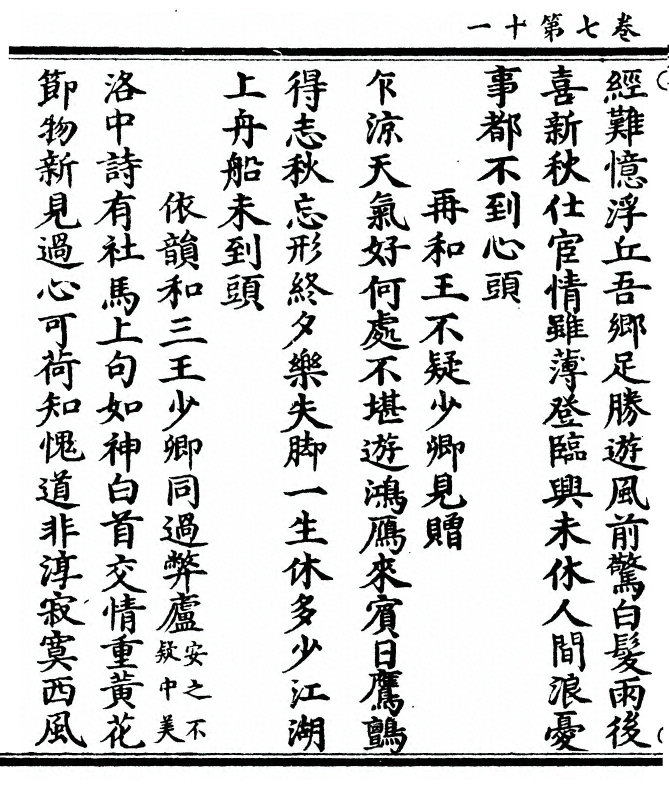 卷七第十一
經難憶浮丘吾鄉足勝遊風前驚白髮雨後
喜新秋仕宦情雖薄登臨興未休人間浪憂
事都不到心頭
再和王不疑少卿見贈
乍涼天氣好何處不堪遊鴻鴈來賓日鷹鸇
得志秋忘形終夕樂失脚一生休多少江湖
上舟船未到頭
依韻和三王少卿同過弊廬安之不疑中美
洛中詩有社馬上句如神白首交情重黃花
節物新見過心可荷知愧道非淳寂寞西風